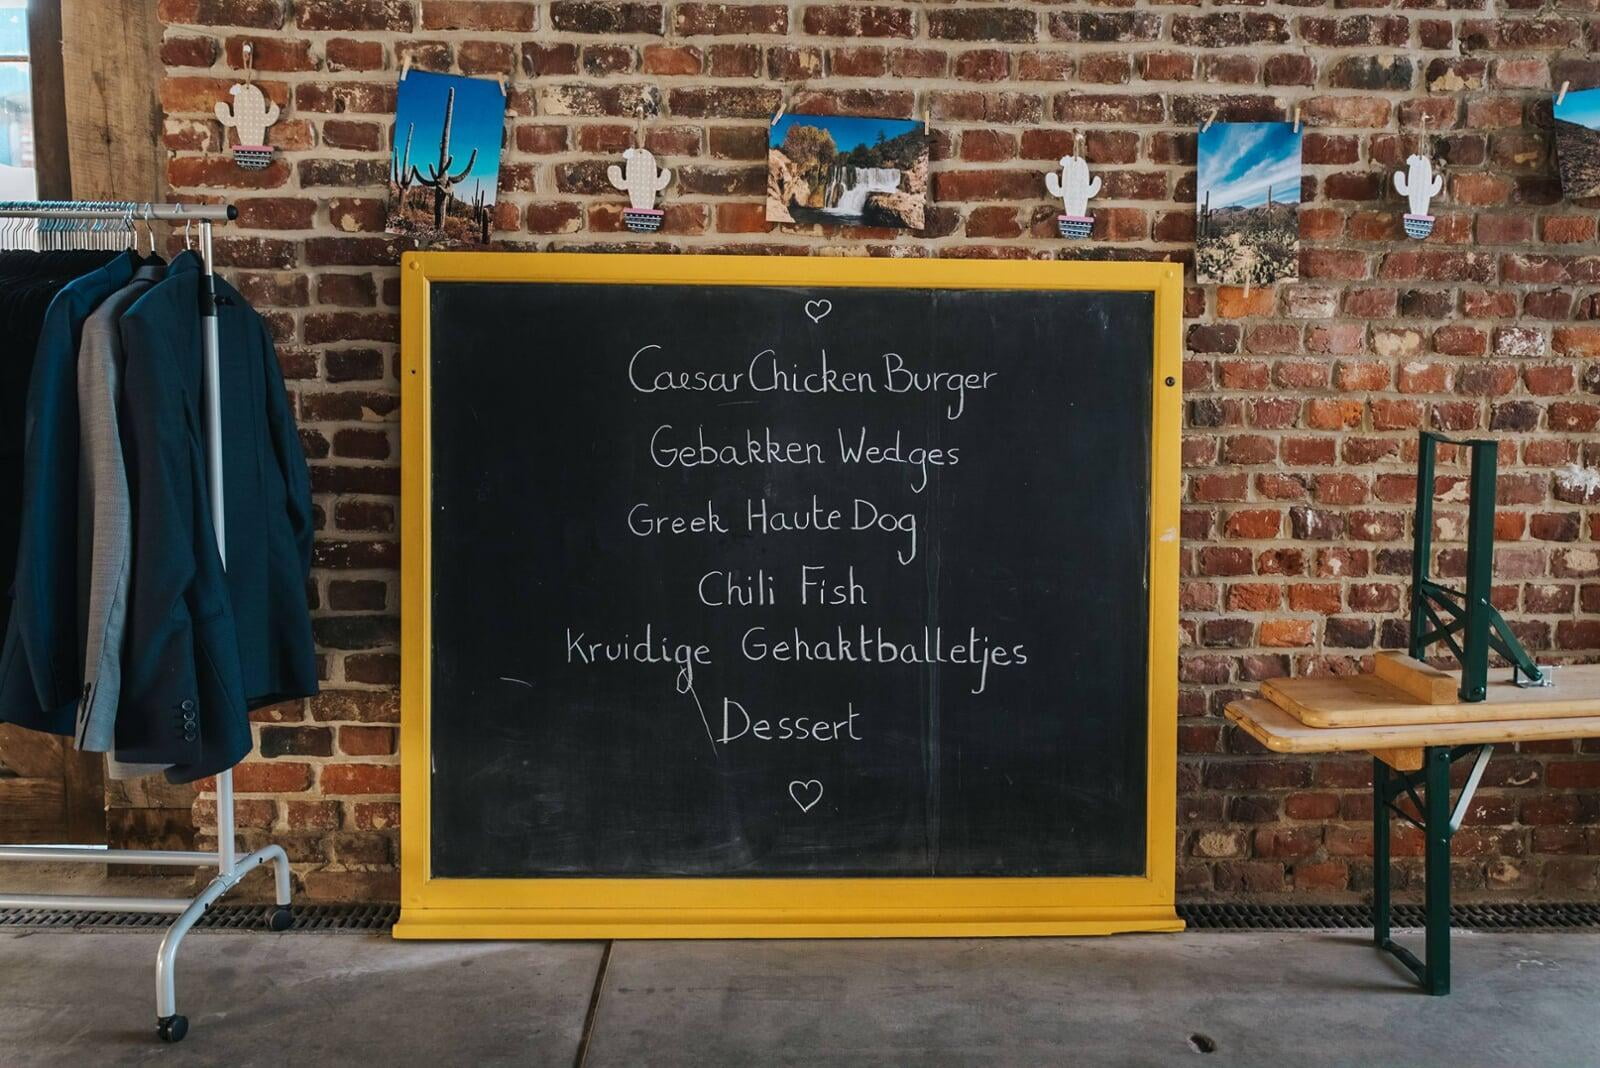 Caesar Chicken Burger
Gebakken Wedges
Greek Haute Dog
Chili Fish
Kruidige Gehaktballetjes
Dessert